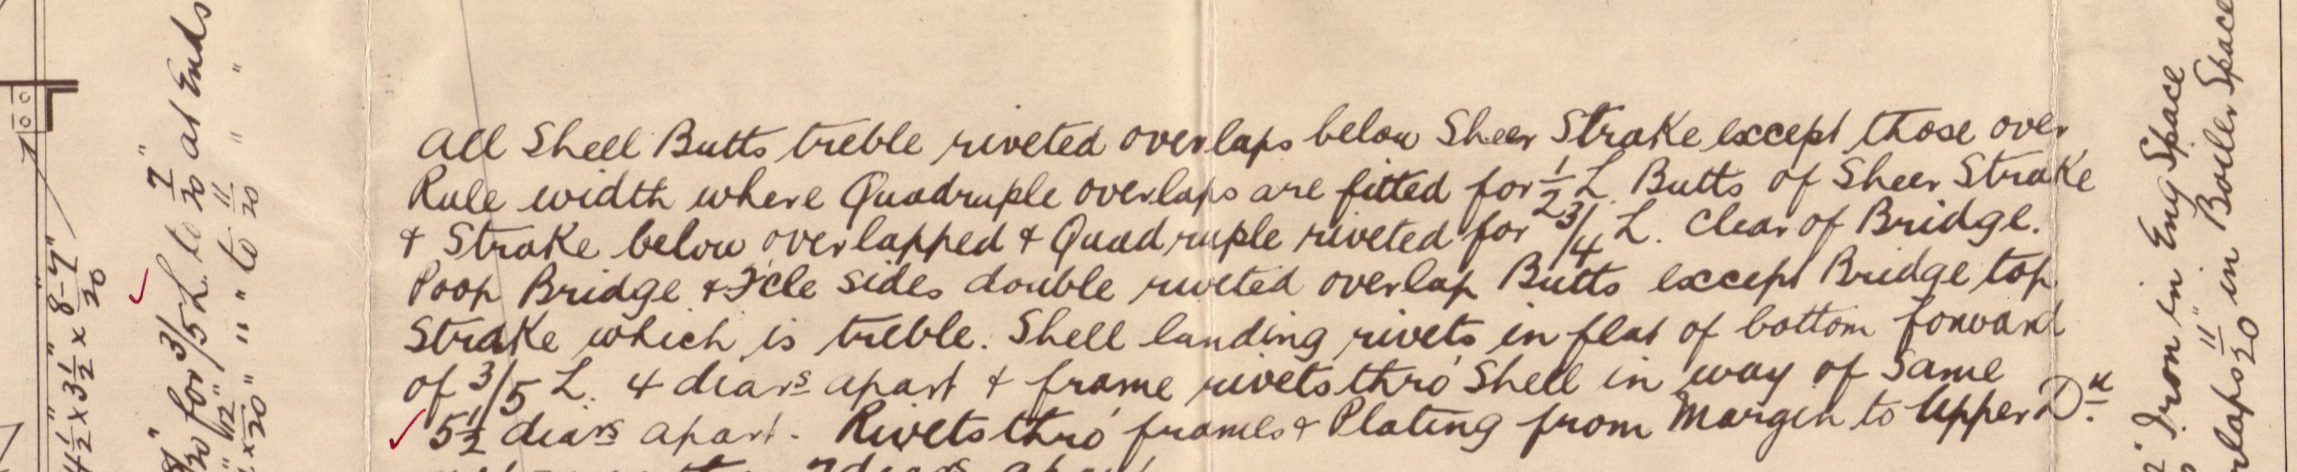 All Shell Butts treble riveted overlaps below Sheer Strake except those over
Rule width where Quadruple overlaps are fitted for 1/2 L. Butts of Sheer Strake
& Strake below overlapped & Quadruple riveted for 3/4 L. Clear of Bridge.
Poop Bridge & F'cle sides double riveted overlap Butts except Bridge top
Strake which is treble. Shell landing rivets in flat of bottom forward
of 3/5 L. 4 diars apart & frame rivets thro' Shell in way of same
5 1/2 diars apart. Rivets thro' frames & Plating from Margin to Upper Dk.
7 diars apart
4 1/2" x 3 1/2" x 8-7"/20
/20 for 3/5 L. to 7"/20 at Ends
" to 11/20 " "
Iron in Eng Space
11"/20 in Boiler Space